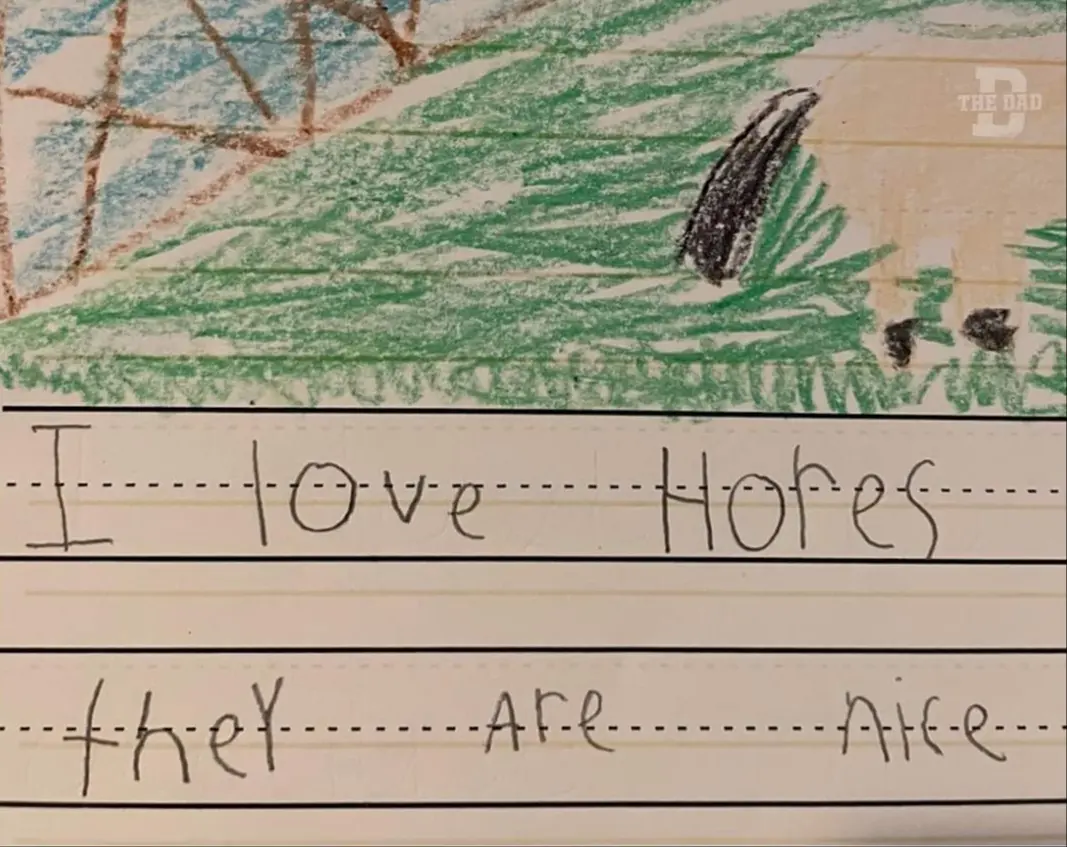 THE DAD
I love Hores
they Are nice